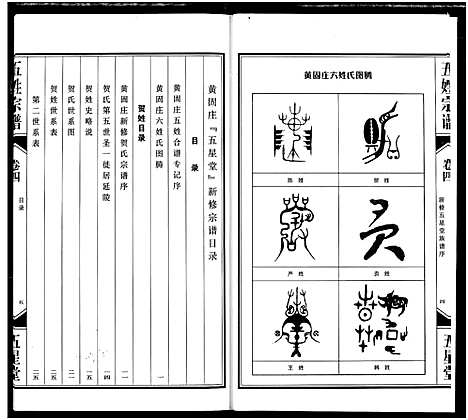 五姓宗谱
卷四
新修五星堂族谱序
四
五星堂
黄固庄六姓氏图腾
贺姓
陈姓
袁姓
严姓
韩姓
王姓
黄固庄『五星堂』新修宗谱目录
目录
黄固庄五姓合谱专记序
黄固庄六姓氏图腾 一
贺姓目录
黄固庄新修贺氏宗谱序 一一
贺氏第五世圣一徙居延陵 一四
贺姓史略说 一五
贺氏世系图
贺姓世系表 二五
第二世系表 二五
五姓宗谱
卷四
目录
五
五星堂